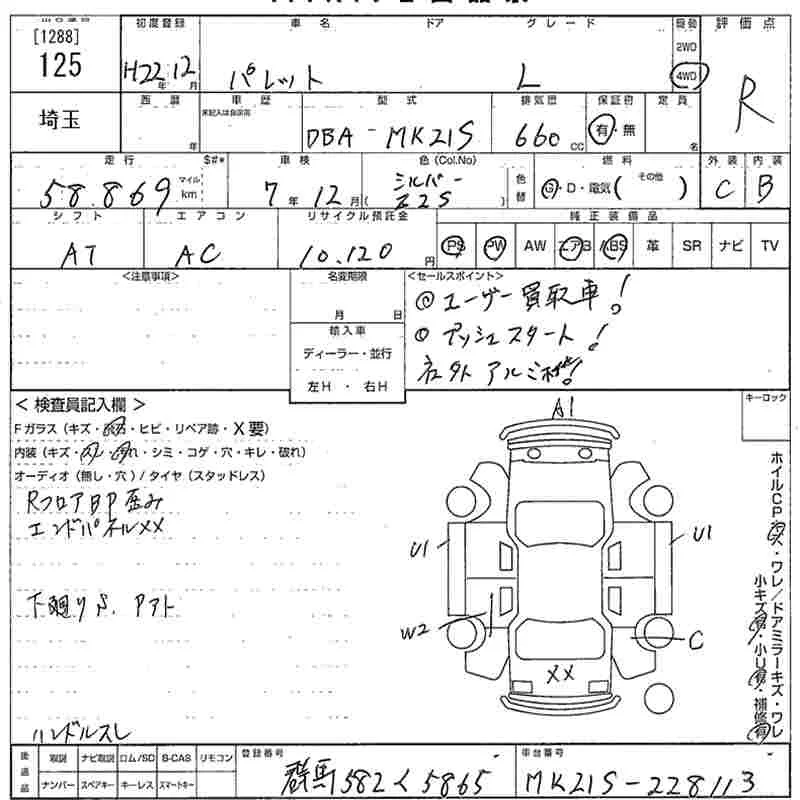 [1288]
125
埼玉
初度登録
H22年12月
車名
パレット
ドア
グレード
L
駆動
2WD
4WD
評価点
R
西暦
年
車歴
未記入は自家用
型式
DBA-MK21S
排気量
660 cc
保証書
有・無
定員
名
走行
$#*
58.869 マイル km
車検
7年12月
色(Col.No)
シルバー
Z2S
色替
燃料
G・D・電気( その他 )
外装
C
内装
B
シフト
AT
エアコン
AC
リサイクル預託金
10.120円
純正装備品
PS PW AW エアB ABS 革 SR ナビ TV
<注意事項>
名変期限
月 日
輸入車
ディーラー・並行
左H ・ 右H
<セールスポイント>
◎ユーザー買取車!
◎プッシュスタート!
社外アルミ
<検査員記入欄>
Fガラス(キズ・・ヒビ・リペア跡・X要)
内装(キズ・・・シミ・コゲ・穴・キレ・破れ)
オーディオ(無し・穴)/タイヤ(スタッドレス)
RフロアBP歪み
エンドパネルXX
下廻りS. Pアト
ハンドルスレ
キーロック
A1
U1
U1
W2
C
XX
ホイルCP・ワレ/ドアミラーキズ・ワレ
小キズ・小U・補修
後送品
取説 ナビ取説 ロム/SD B-CAS リモコン
ナンバー スペアキー キーレス スマートキー
登録番号
群馬582く5865
車台番号
MK21S-228113